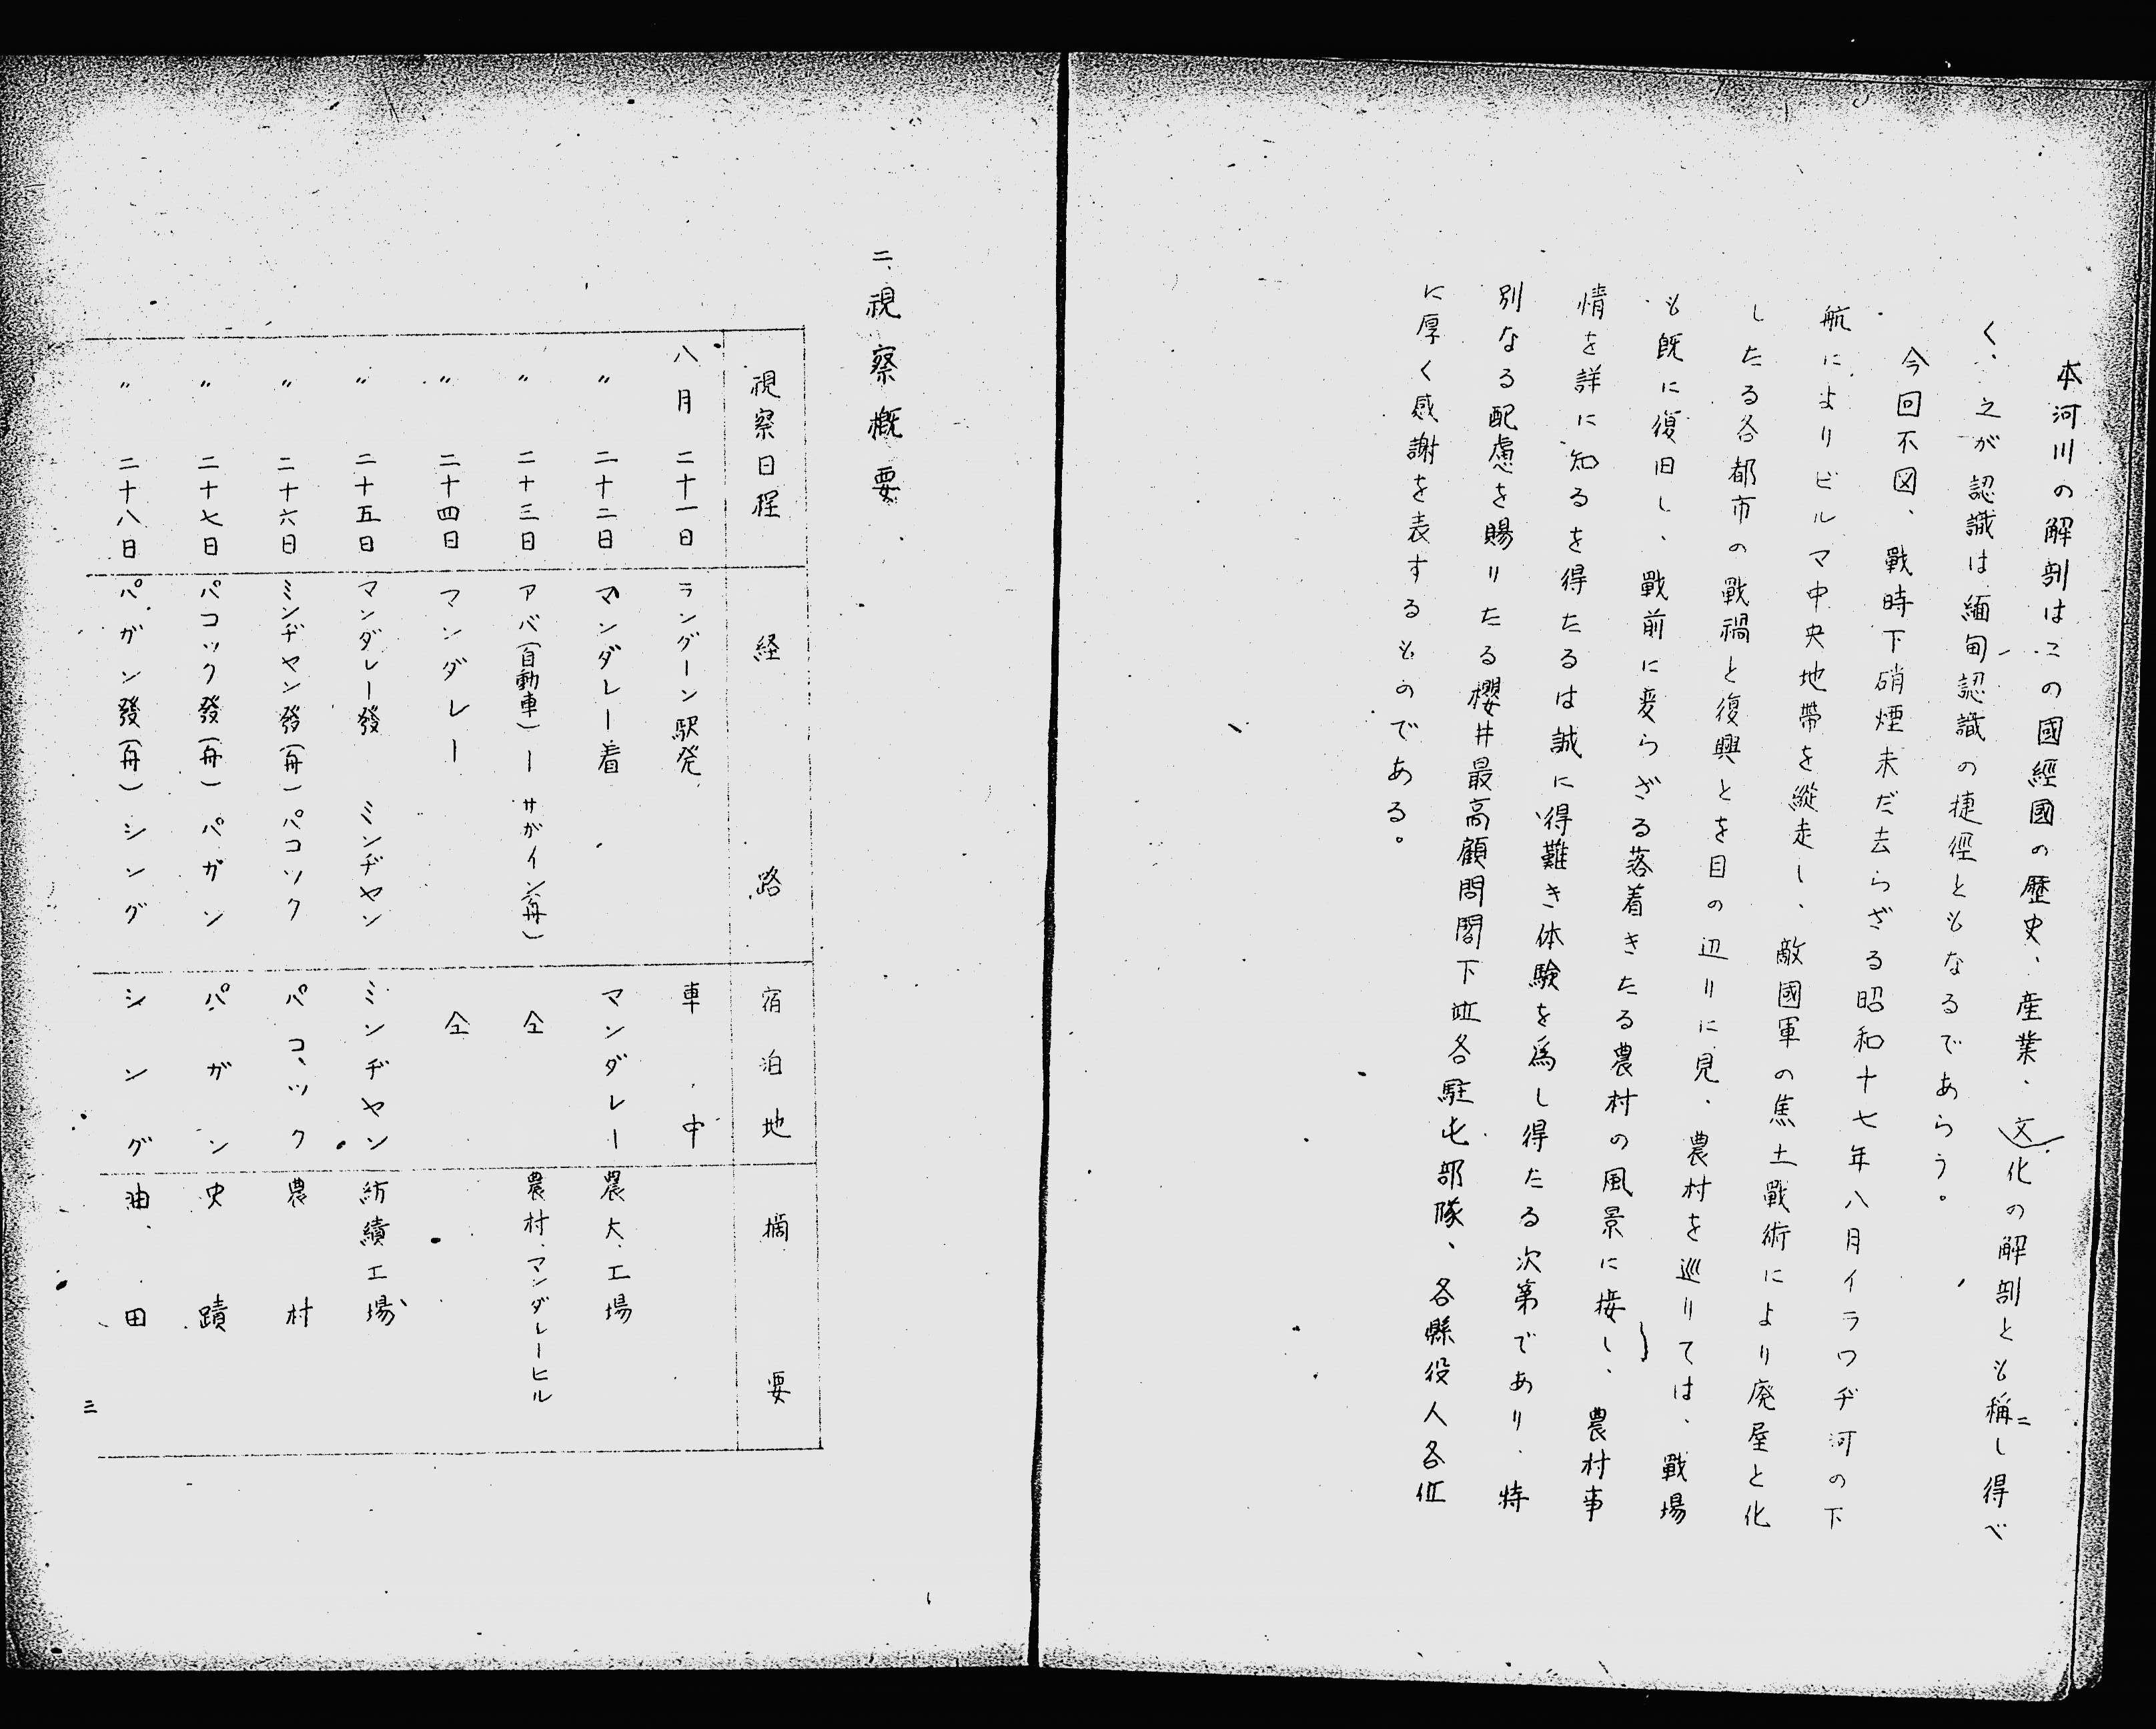 本河川の解剖はこの國經國の歴史、産業、文化の解剖とも稱し得べ
く、之が認識は緬甸認識の捷徑ともなるであらう。
今回不図、戰時下硝煙未だ去らざる昭和十七年八月イラワヂ河の下
航によりビルマ中央地帶を縱走し、敵國軍の焦土戰術により廃屋と化
したる各都市の戰禍と復興とを目の辺りに見、農村を巡りては、戰場
も既に復旧し、戰前に変らざる落着きたる農村の風景に接し、農村事
情を詳に知るを得たるは誠に得難き体驗を爲し得たる次第であり、特
別なる配慮を賜りたる櫻井最高顧問閣下並各駐屯部隊、各縣役人各位
に厚く感謝を表するものである。
二
二、視察概要
視察日程 経路 宿泊地 摘要
八月二十一日 ラングーン駅発 車中
〃二十二日 マンダレー着 マンダレー 農大、工場
〃二十三日 アバ(自動車)ーサガイン(舟) 仝 農村、マンダレーヒル
〃二十四日 マンダレー 仝
〃二十五日 マンダレー發 ミンヂヤン ミンヂヤン 紡績工場
〃二十六日 ミンヂヤン發(舟)パコック パコック 農村
〃二十七日 パコック發(舟)パガン パガン 史蹟
〃二十八日 パガン發(舟)シング シング 油田
三